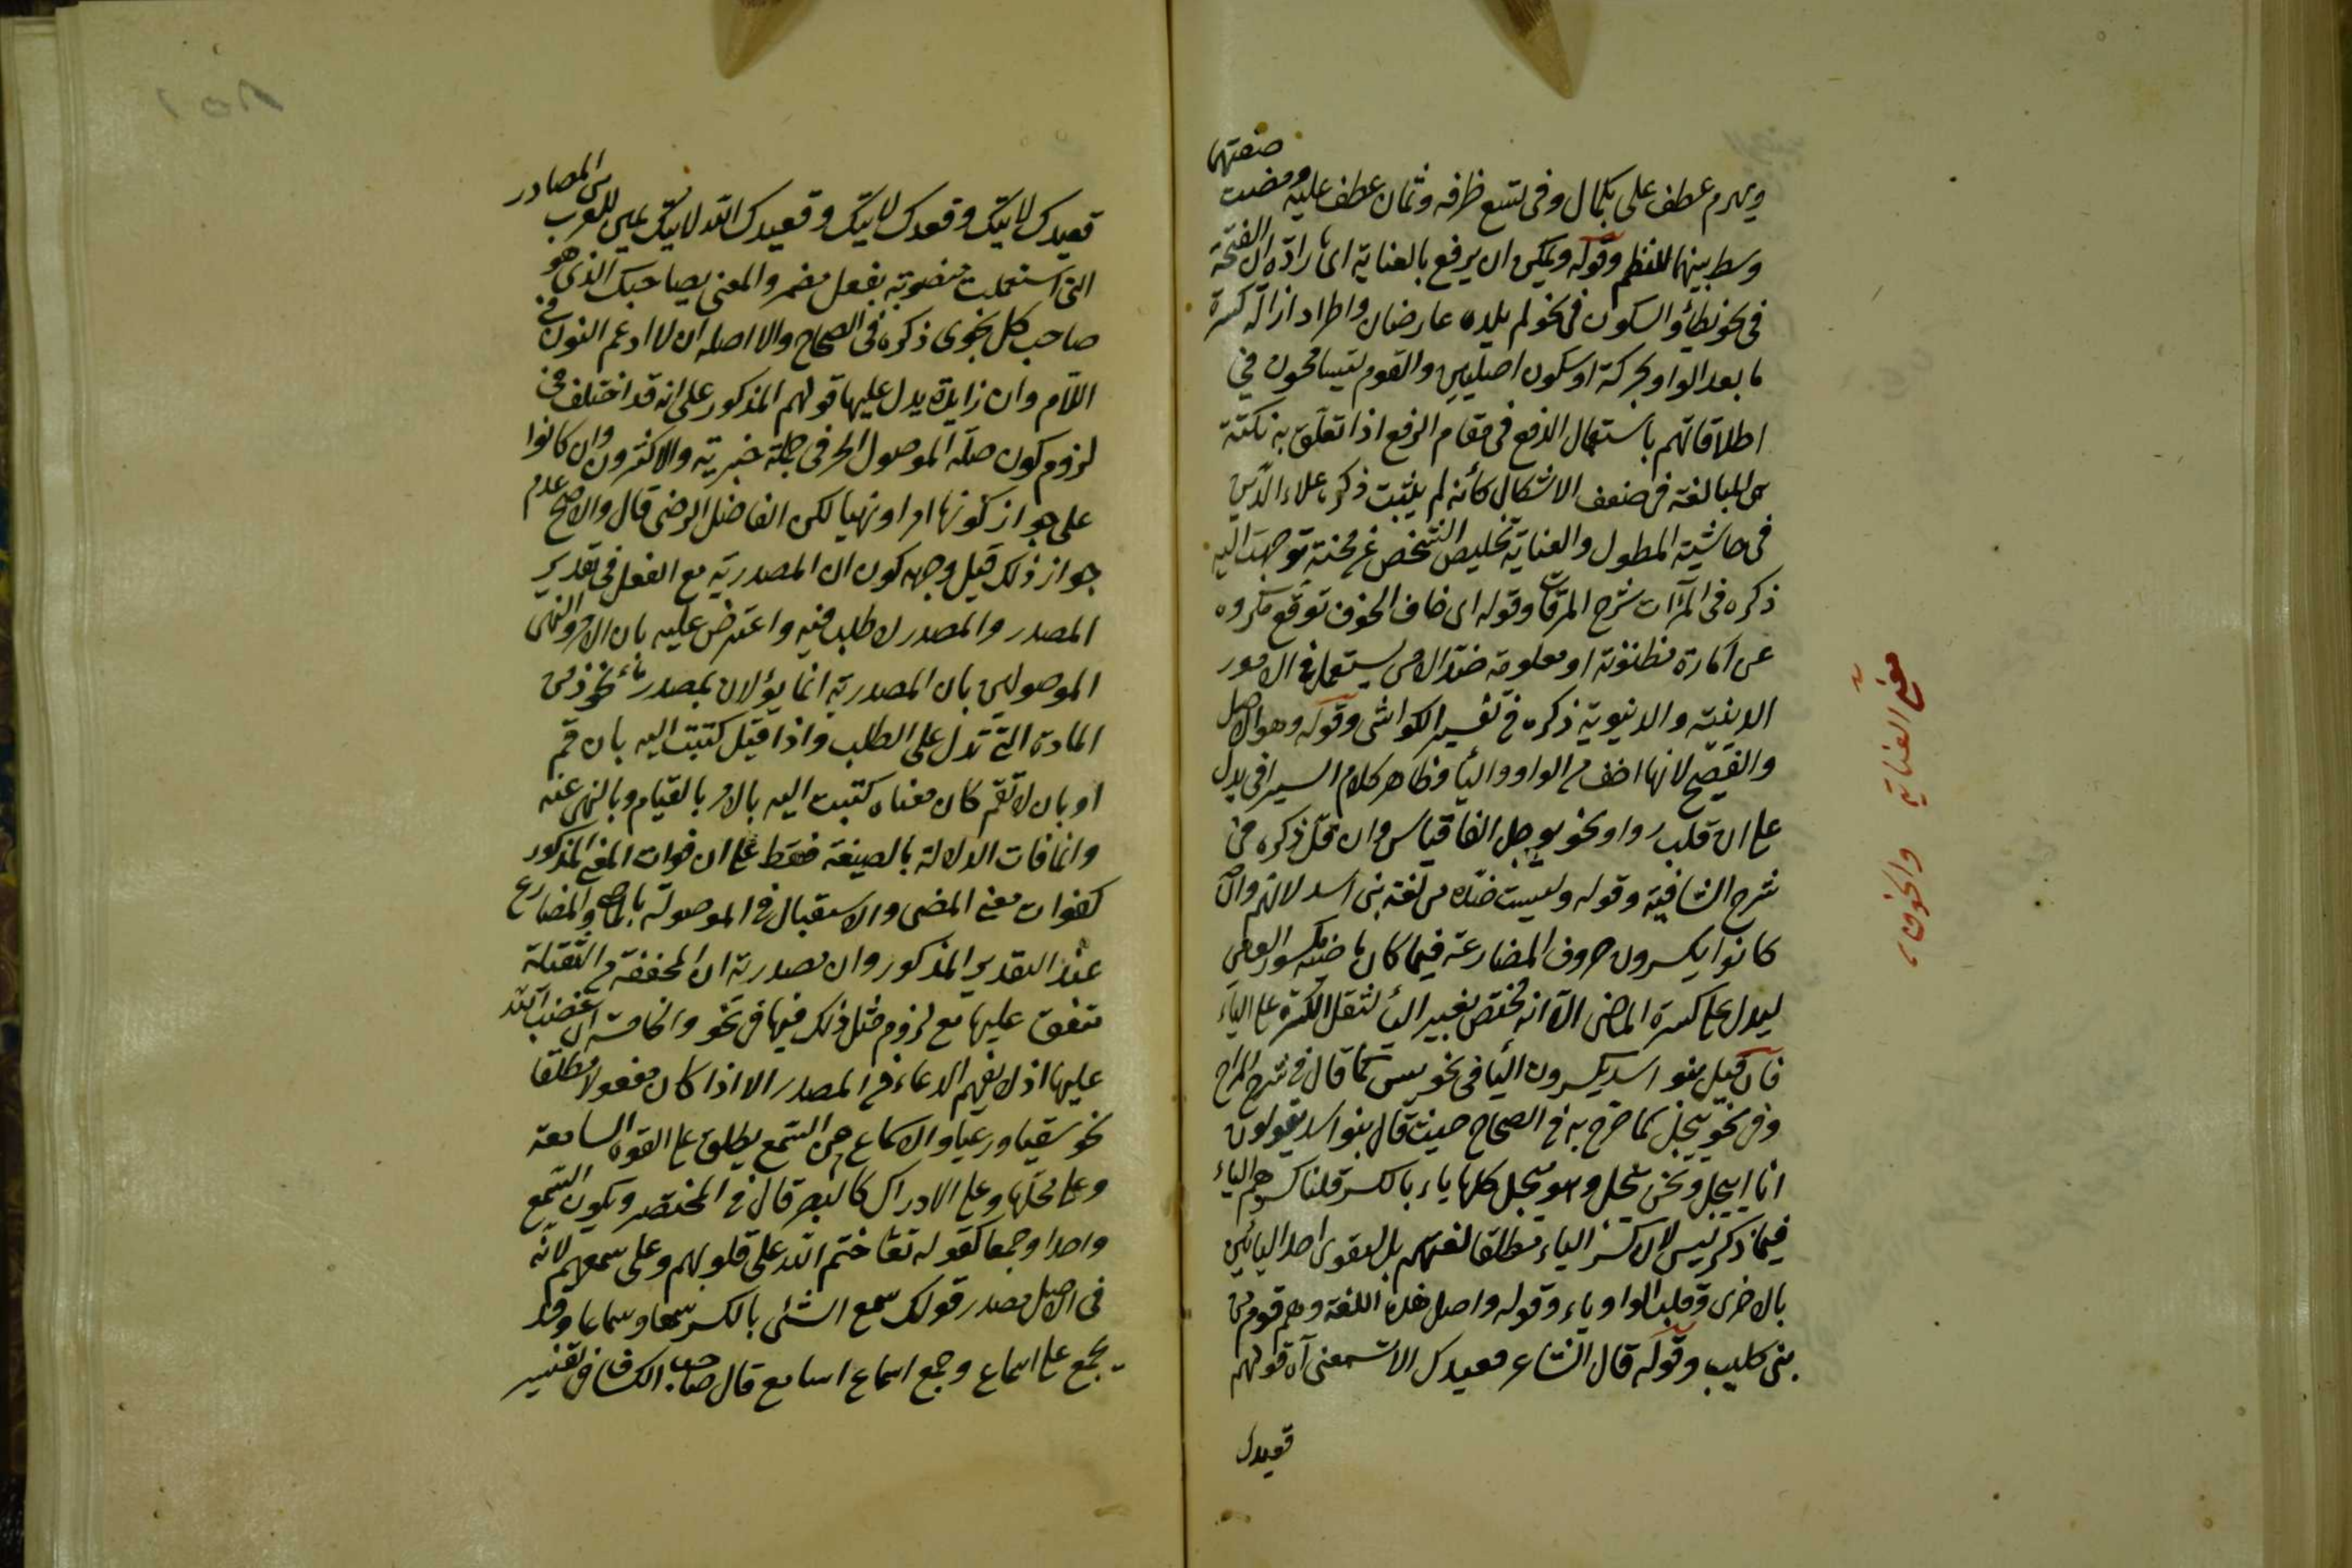 ويهرم عطف على بكمال وفى تسع ظرفه وثمان عطف عليه ومضت صفتها
وسط بينهما للنظم وقوله ويمكن ان يرفع بالعناية اى بارادة ان الفتحة
فى نحو يطأ والسكون فى نحو لم يلده عارضان واطراد ازالة كسرة
ما بعد الواو بحركة او سكون اصليين والقوم يتسامحون فى
اطلاقاتهم باستعمال الدفع فى مقام الرفع اذا تعلق به نكتة
من المبالغة فى ضعف الاشكال كأنه لم يثبت ذكره علاء الدين
فى حاشية المطول والعناية تخليص الشخص عن محنة توجهت اليه
ذكره فى المرآت شرح المرقات وقوله اى خاف الخوف توقع مكروه
عن امارة مظنونة او معلومة ضد الامن يستعمل فى الامور
الدينية والدنيوية ذكره فى تفسير الكواشى وقوله وهو الاصل
والفصيح لانها اخف من الواو والياء وظاهر كلام السيرافى يدل
على ان قلب واو نحو يوجل الفا قياس وان قل ذكره فى
شرح الشافية وقوله وليست هذه من لغة بنى اسد لانهم وان
كانوا يكسرون حروف المضارعة فيما كان ماضيه مكسور العين
ليدل على كسرة الماضى الا انه مختص بغير الياء لثقل الكسرة على الياء
فان قيل بنو اسد يكسرون الياء فى نحو ييس كما قال فى شرح المراح
وفى نحو ييجل كما صرح به فى الصحاح حيث قال بنو اسد يقولون
انا ايجل ونحن نيجل وهو ييجل كلها ياء بالكسر قلنا كسرهم الياء
فيما ذكر ليس لان كسر الياء مطلقا لغتهم بل لتقوى احد اليائين
بالاخرى وقلب الواو ياء وقوله واصل هذه اللغة وهم قوم من
بنى كليب وقوله قال الشاعر قعيدك الا تسمعنى آه قولهم
قعيدك
معنى العناية والخوف
قعيدك لا آتيك وقعدك لا آتيك وقعيدك الله لا آتيك يمين للعرب من المصادر
التى استعملت منصوبة بفعل مضمر والمعنى بصاحبك الذى هو
صاحب كل نجوى ذكره فى الصحاح والا اصله ان لا ادغم النون فى
اللام وان زايدة يدل عليها قولهم المذكور على انه قد اختلف فى
لزوم كون صلة الموصول الحرفى جملة خبرية والاكثرون وان كانوا
على جواز كونها امرا او نهيا لكن الفاضل الرضى قال والاصح عدم
جواز ذلك قيل وجهه كون ان المصدرية مع الفعل فى تقدير
المصدر والمصدر لا طلب فيه واعترض عليه بان الامر والنهى
الموصولين بان المصدرية انما يؤلان بمصدر مأخوذ من
المادة التى تدل على الطلب واذا قيل كتبت اليه بان قم
او بان لا تقم كان معناه كتبت اليه بالامر بالقيام وبالنهى عنه
وانما فات الدلالة بالصيغة فقط على ان فوات المعنى المذكور
كفوات معنى المضى والاستقبال فى الموصولة بالماضى والمضارع
عند التقدير المذكور وان مصدرية ان المخففة من الثقيلة
متفق عليها مع لزوم مثل ذلك فيها فى نحو والخامسة ان غضب الله
عليها اذ لا يفهم الدعاء فى المصدر الا اذا كان مفعولا مطلقا
نحو سقيا ورعيا والاسماع من السمع يطلق على القوة السامعة
وعلى محلها وعلى الادراك كالبصر قال فى المختصر ويكون السمع
واحدا وجمعا كقوله تعا ختم الله على قلوبهم وعلى سمعهم لانه
فى الاصل مصدر قولك سمع الشئ بالكسر سمعا وسماعا وقد
يجمع على اسماع وجمع اسماع اسامع قال صاحب الكشاف فى تفسير